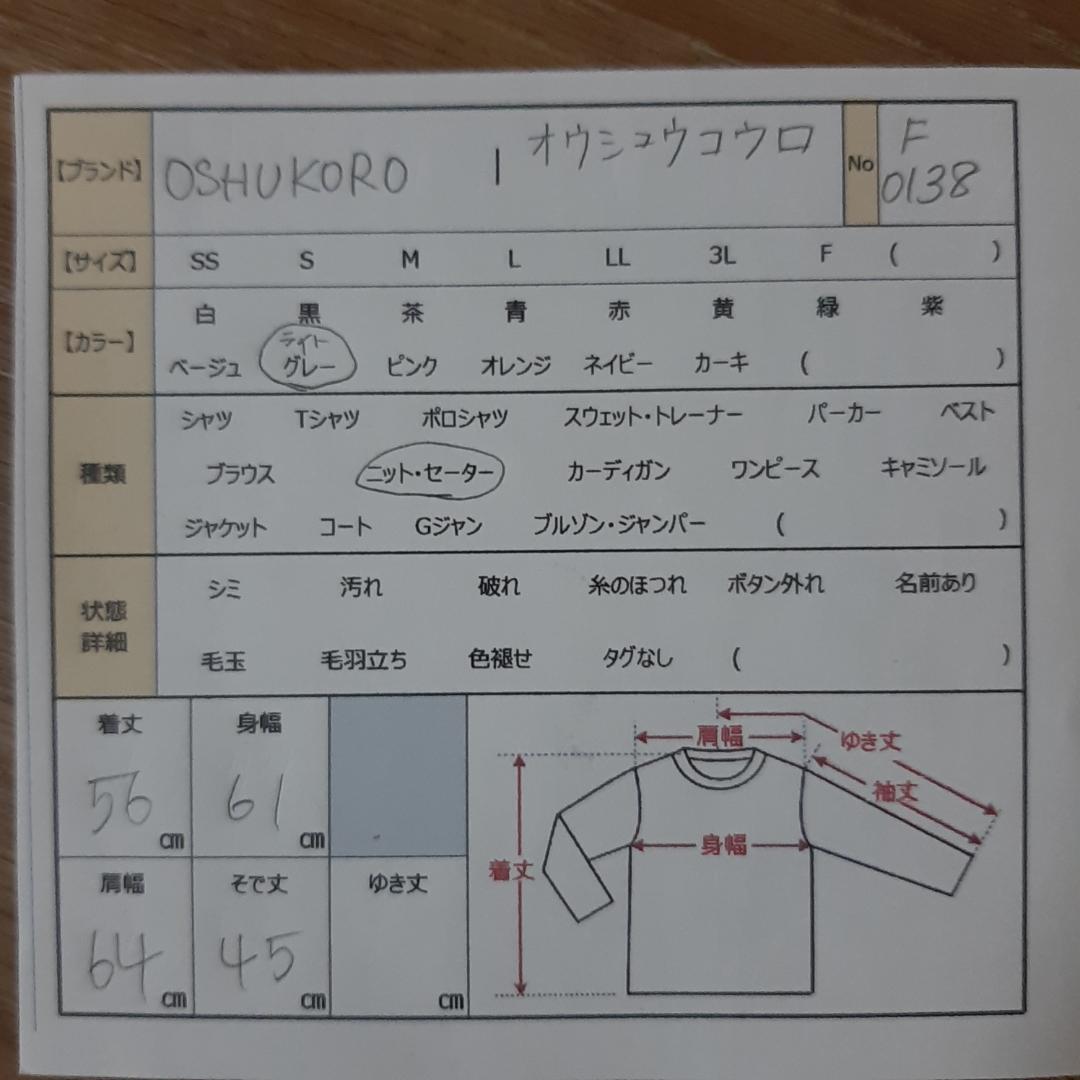 【ブランド】 OSHUKORO | オウシュウコウロ No F 0138
【サイズ】 SS S M L LL 3L F ( )
【カラー】 白 黒 茶 青 赤 黄 緑 紫
ベージュ ライト グレー ピンク オレンジ ネイビー カーキ ( )
種類 シャツ Tシャツ ポロシャツ スウェット・トレーナー パーカー ベスト
ブラウス ニット・セーター カーディガン ワンピース キャミソール
ジャケット コート Gジャン ブルゾン・ジャンパー ( )
状態詳細 シミ 汚れ 破れ 糸のほつれ ボタン外れ 名前あり
毛玉 毛羽立ち 色褪せ タグなし ( )
着丈 身幅
56 cm 61 cm
肩幅 そで丈 ゆき丈
64 cm 45 cm cm
肩幅 ゆき丈
袖丈
身幅
着丈